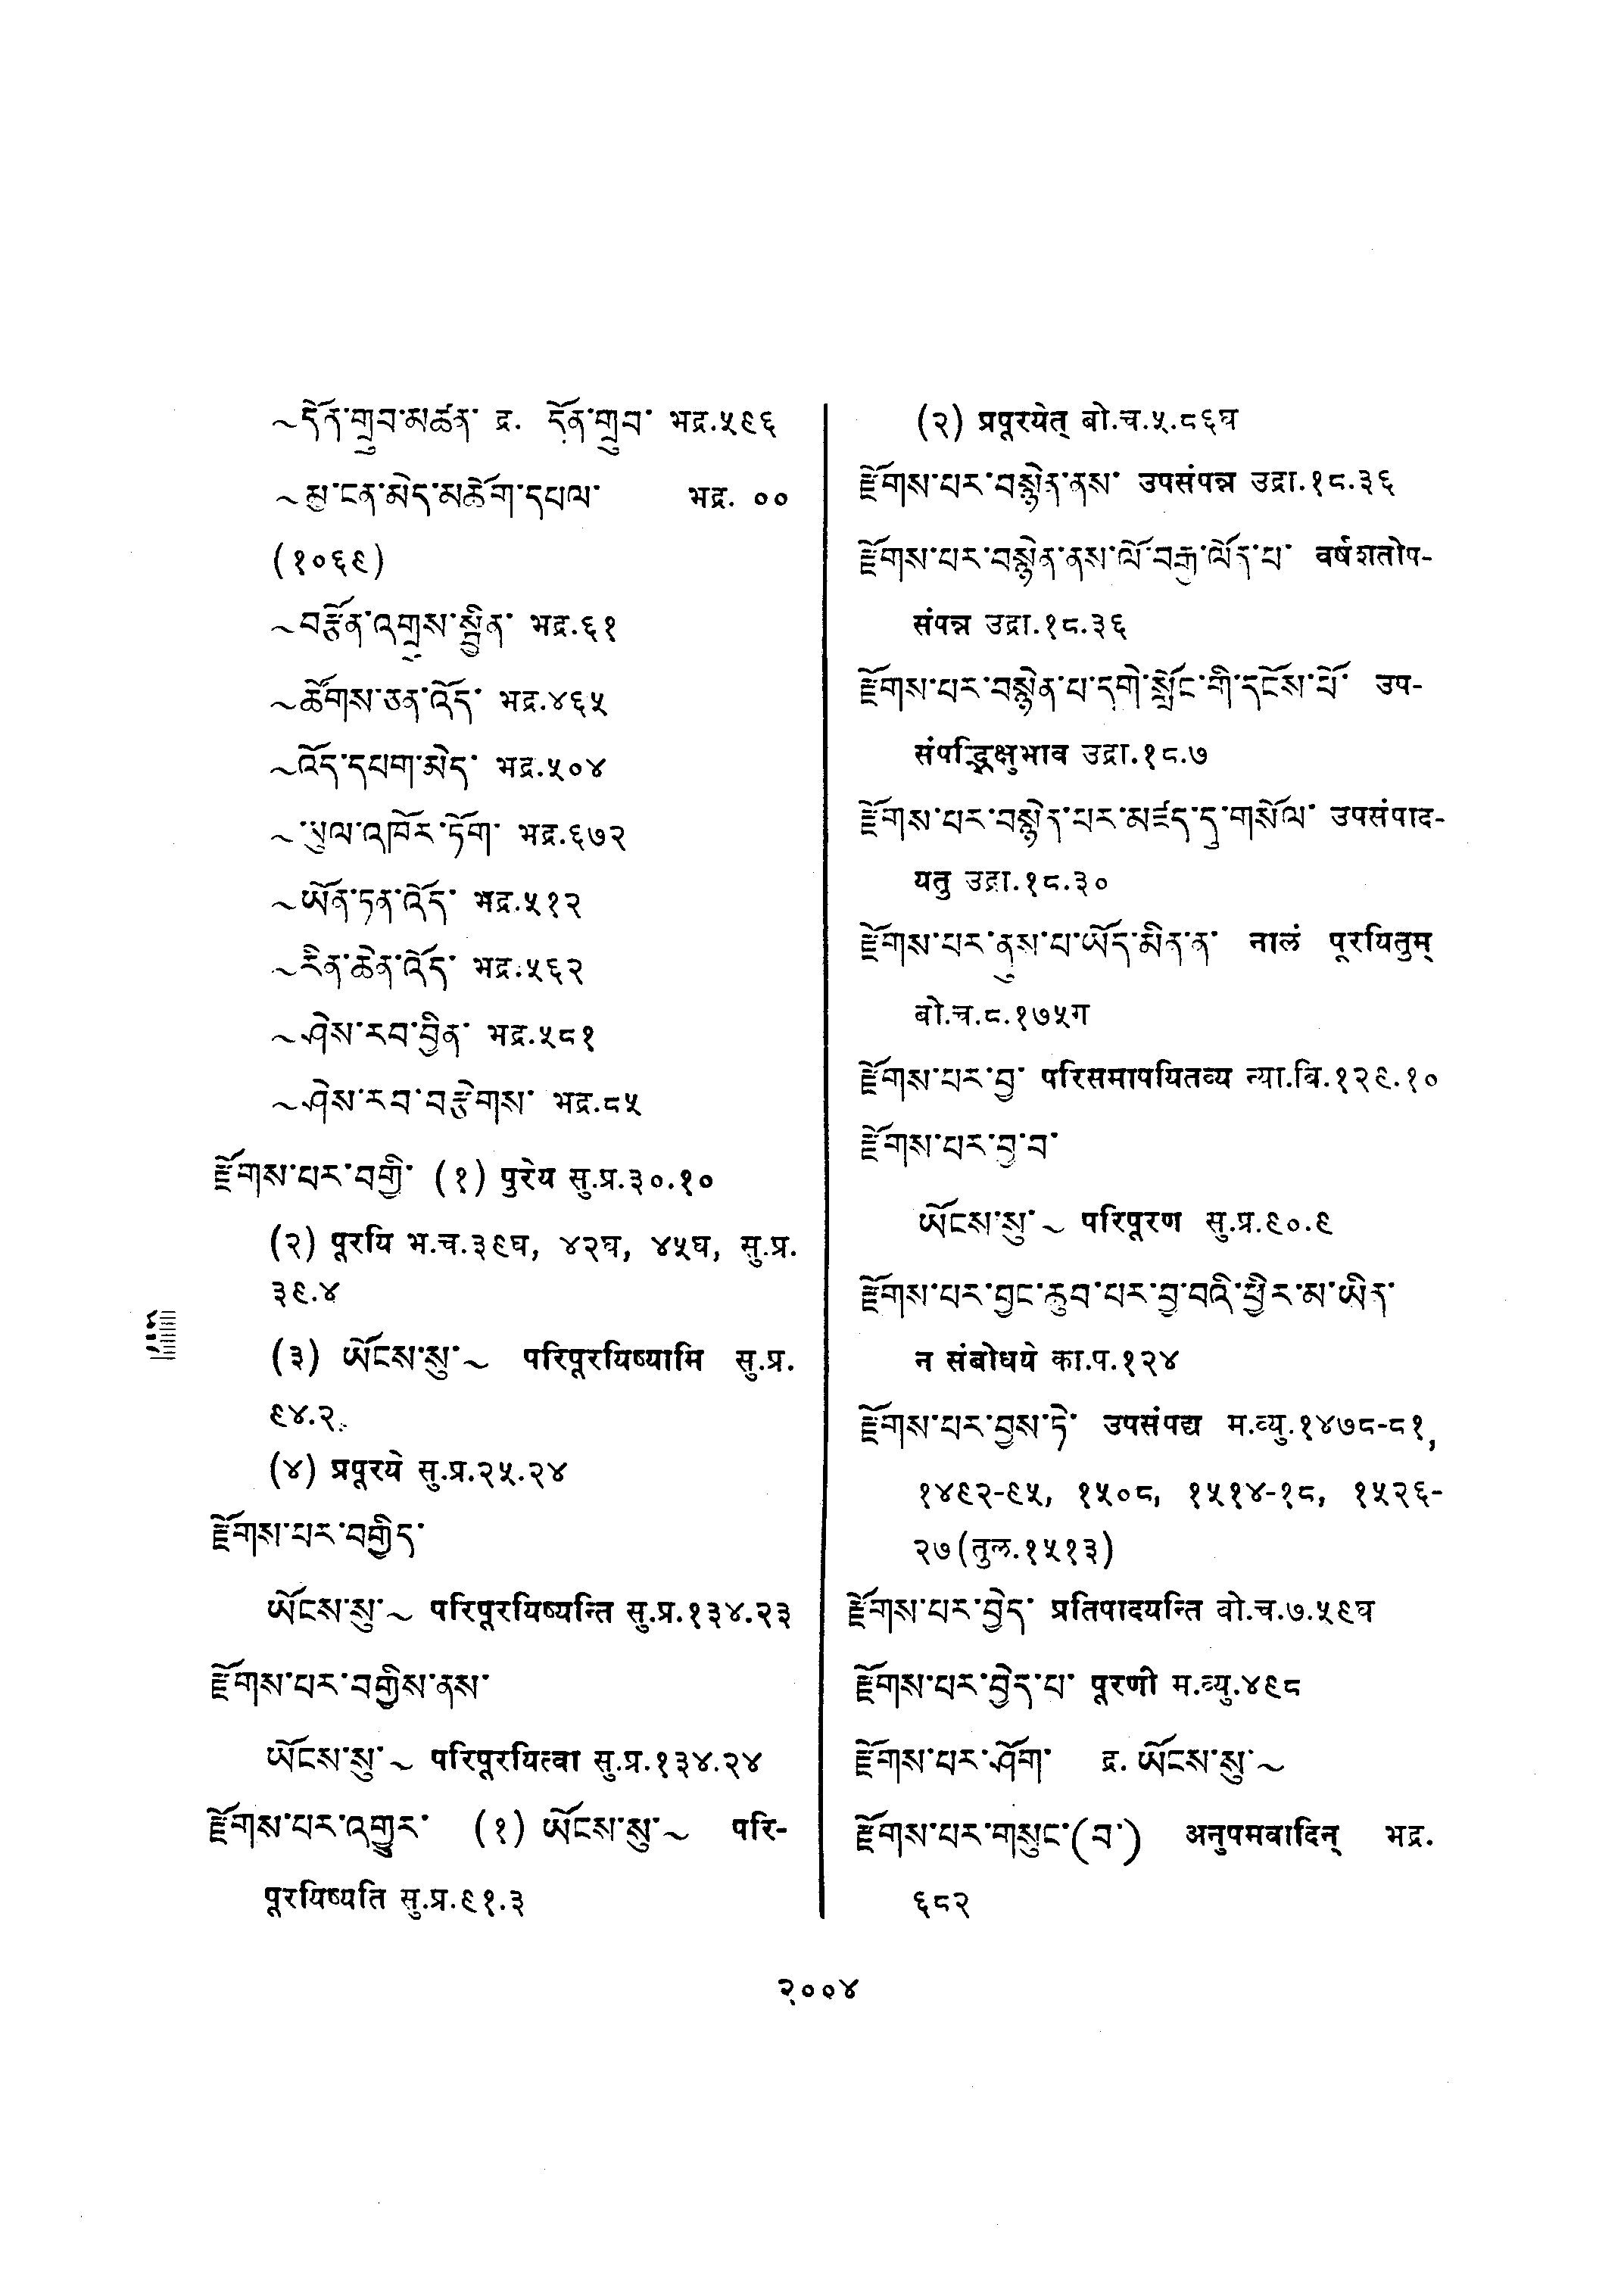 ~དོན་གྲུབ་མཚན་ द्र. དོན་གྲུབ་ भद्र.५९६
~མྱ་ངན་མེད་མཆོག་དཔལ་ भद्र. ००
(१०६९)
~བརྩོན་འགྲུས་སྦྱིན་ भद्र.६१
~ཆོགས་ཅན་འོད་ भद्र.४६५
~འོད་དཔག་མེད་ भद्र.५०४
~ཡུལ་འཁོར་ཏོག་ भद्र.६७२
~ཡོན་ཏན་འོད་ भद्र.५१२
~རིན་ཆེན་འོད་ भद्र.५६२
~ཤེས་རབ་བྱིན་ भद्र.५८१
~ཤེས་རབ་བརྩེགས་ भद्र.८५
རྫོགས་པར་བགྱི་ (१) पुरेय सु.प्र.३०.१०
(२) पूरयि भ.च.३९घ, ४२घ, ४५घ, सु.प्र.
३९.४
(३) ཡོངས་སུ་~ परिपूरयिष्यामि सु.प्र.
९४.२
(४) प्रपूरये सु.प्र.२५.२४
རྫོགས་པར་བགྱིད་
ཡོངས་སུ་~ परिपूरयिष्यन्ति सु.प्र.१३४.२३
རྫོགས་པར་བགྱིས་ནས་
ཡོངས་སུ་~ परिपूरयित्वा सु.प्र.१३४.२४
རྫོགས་པར་འགྱུར་ (१) ཡོངས་སུ་~ परि-
पूरयिष्यति सु.प्र.९१.३
(२) प्रपूरयेत् बो.च.५.८६घ
རྫོགས་པར་བསྙེན་ནས་ उपसंपन्न उद्रा.१८.३६
རྫོགས་པར་བསྙེན་ནས་ལོ་བརྒྱ་ལོན་པ་ वर्षशतोप-
संपन्न उद्रा.१८.३६
རྫོགས་པར་བསྙེན་པ་དགེ་སློང་གི་དངོས་པོ་ उप-
संपद्भिक्षुभाव उद्रा.१८.७
རྫོགས་པར་བསྙེན་པར་མཛད་དུ་གསོལ་ उपसंपाद-
यतु उद्रा.१८.३०
རྫོགས་པར་ནུས་པ་ཡོད་མིན་ན་ नालं पूरयितुम्
बो.च.८.१७५ग
རྫོགས་པར་བྱ་ परिसमापयितव्य न्या.बि.१२९.१०
རྫོགས་པར་བྱ་བ་
ཡོངས་སུ་~ परिपूरण सु.प्र.९०.९
རྫོགས་པར་བྱང་ཆུབ་པར་བྱ་བའི་ཕྱིར་མ་ཡིན་
न संबोधये का.प.१२४
རྫོགས་པར་བྱས་ཏེ་ उपसंपद्य म.व्यु.१४७८-८१,
१४९२-९५, १५०८, १५१४-१८, १५२६-
२७(तुल.१५१३)
རྫོགས་པར་བྱེད་ प्रतिपादयन्ति बो.च.७.५९घ
རྫོགས་པར་བྱེད་པ་ पूरणी म.व्यु.४९८
རྫོགས་པར་ཤོག་ द्र. ཡོངས་སུ་~
རྫོགས་པར་གསུང་(བ་) अनुपमवादिन् भद्र.
६८२
२००४